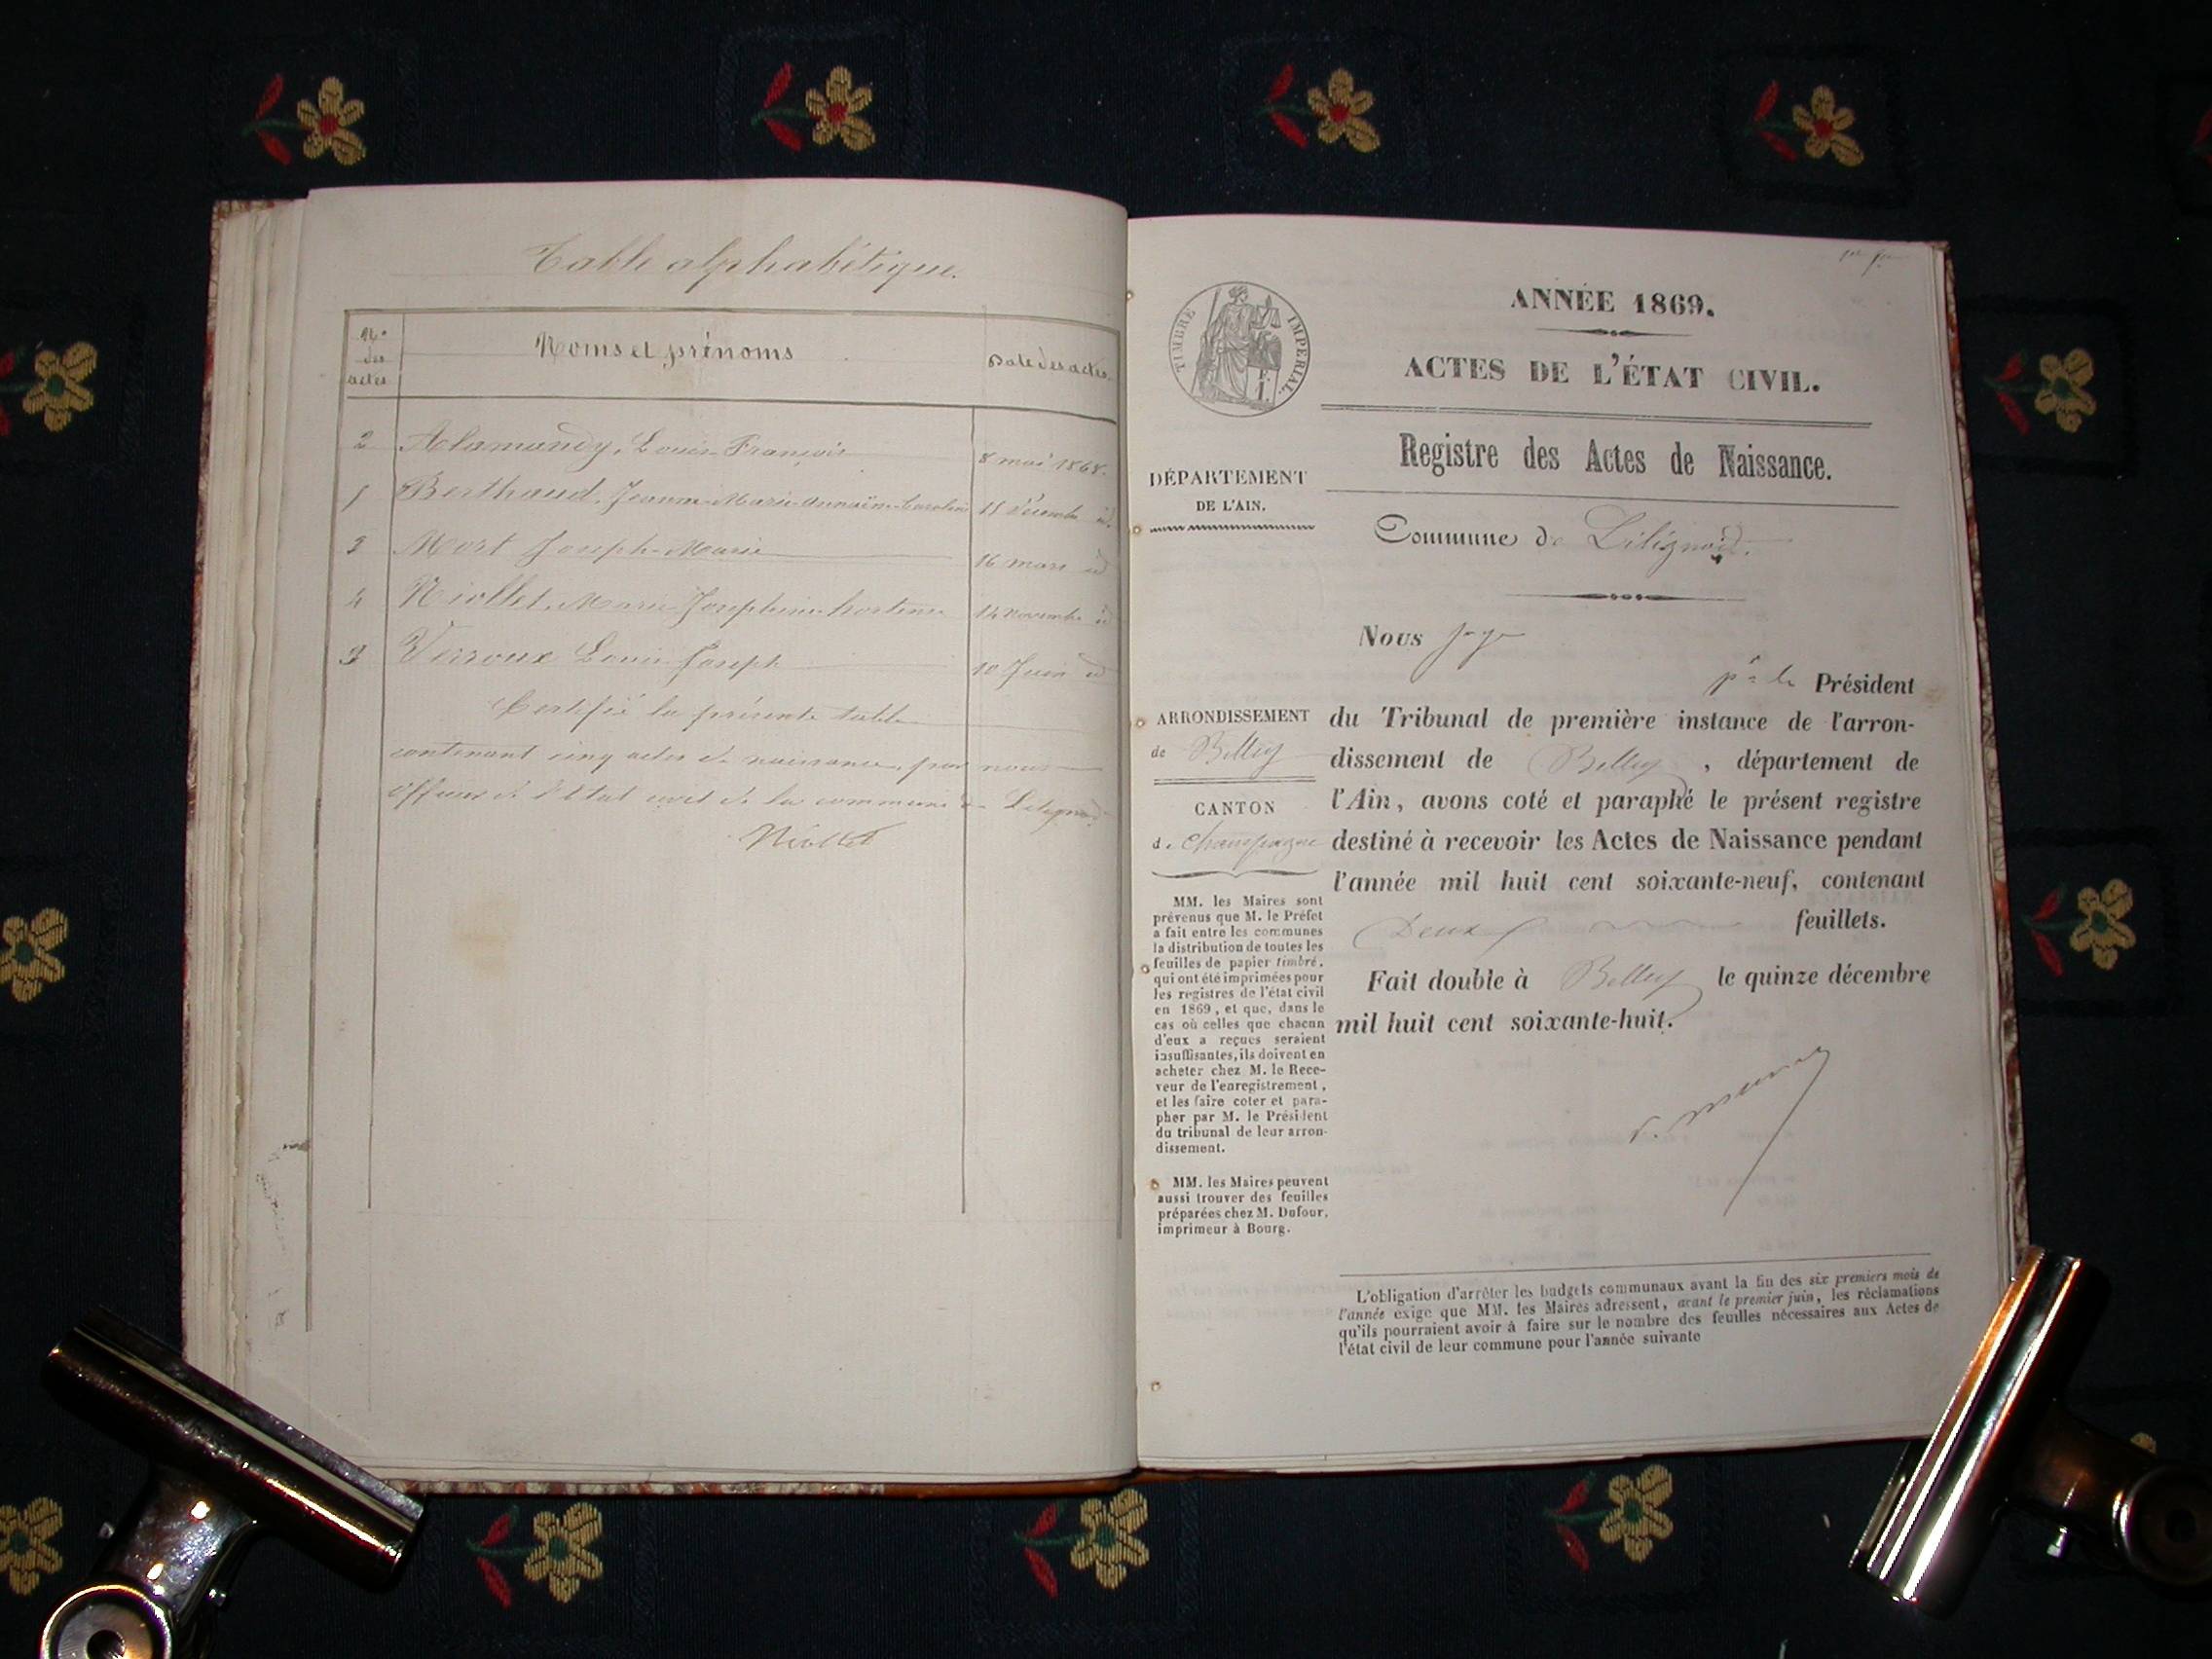 Table alphabétique.
Nos des actes
Noms et prénoms
Date des actes.
2 Alamandy, Louis François 8 mai 1868.
1 Berthaud, Jeanne-Marie 15 Décembre id
3 Mort Joseph-Marie 16 mars id
4 Niollet, Marie Joséphine hortense 14 Novembre id
3 Verroux Louis Joseph 10 Juin id
Certifié la présente table
contenant cinq actes de naissance, par nous
Officier de l'Etat civil de la commune de Lilignod
Niollet
TIMBRE IMPERIAL.
ANNÉE 1869.
ACTES DE L'ÉTAT CIVIL.
Registre des Actes de Naissance.
DÉPARTEMENT
DE L'AIN.
Commune de Lilignod.
Nous juge
pr le Président
ARRONDISSEMENT
de Belley
CANTON
de Champagne
du Tribunal de première instance de l'arron-
dissement de Belley, département de
l'Ain, avons coté et paraphé le présent registre
destiné à recevoir les Actes de Naissance pendant
l'année mil huit cent soixante-neuf, contenant
Deux feuillets.
Fait double à Belley le quinze décembre
mil huit cent soixante-huit.
MM. les Maires sont
prévenus que M. le Préfet
a fait entre les communes
la distribution de toutes les
feuilles de papier timbré,
qui ont été imprimées pour
les registres de l'état civil
en 1869, et que, dans le
cas où celles que chacun
d'eux a reçues seraient
insuffisantes, ils doivent en
acheter chez M. le Rece-
veur de l'enregistrement,
et les faire coter et para-
pher par M. le Président
du tribunal de leur arron-
dissement.
MM. les Maires peuvent
aussi trouver des feuilles
préparées chez M. Dufour,
imprimeur à Bourg.
L'obligation d'arrêter les budgets communaux avant la fin des six premiers mois de
l'année exige que MM. les Maires adressent, avant le premier juin, les réclamations
qu'ils pourraient avoir à faire sur le nombre des feuilles nécessaires aux Actes de
l'état civil de leur commune pour l'année suivante